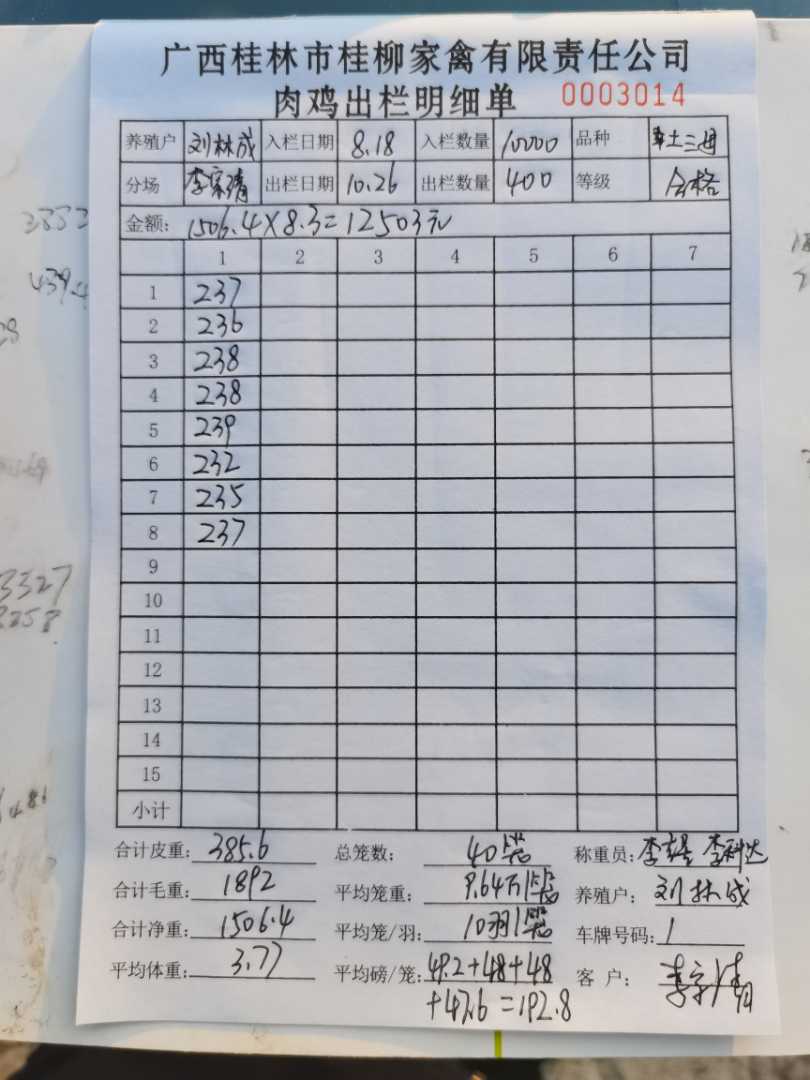 广西桂林市桂柳家禽有限责任公司
肉鸡出栏明细单 0003014
养殖户 刘林成 入栏日期 8.18 入栏数量 10000 品种
分场 出栏日期 10.26 出栏数量 400 等级 合格
金额: 1506.4×8.3=12503元
1 2 3 4 5 6 7
1 237
2 236
3 238
4 238
5 239
6 232
7 235
8 237
9
10
11
12
13
14
15
小计
合计皮重: 385.6 总笼数: 40笼 称重员:
合计毛重: 1892 平均笼重: 9.64 养殖户: 刘林成
合计净重: 1506.4 平均笼/羽: 10羽/笼 车牌号码: /
平均体重: 3.77 平均磅/笼: 49.2+48+48 客 户:
+47.6=192.8
3327